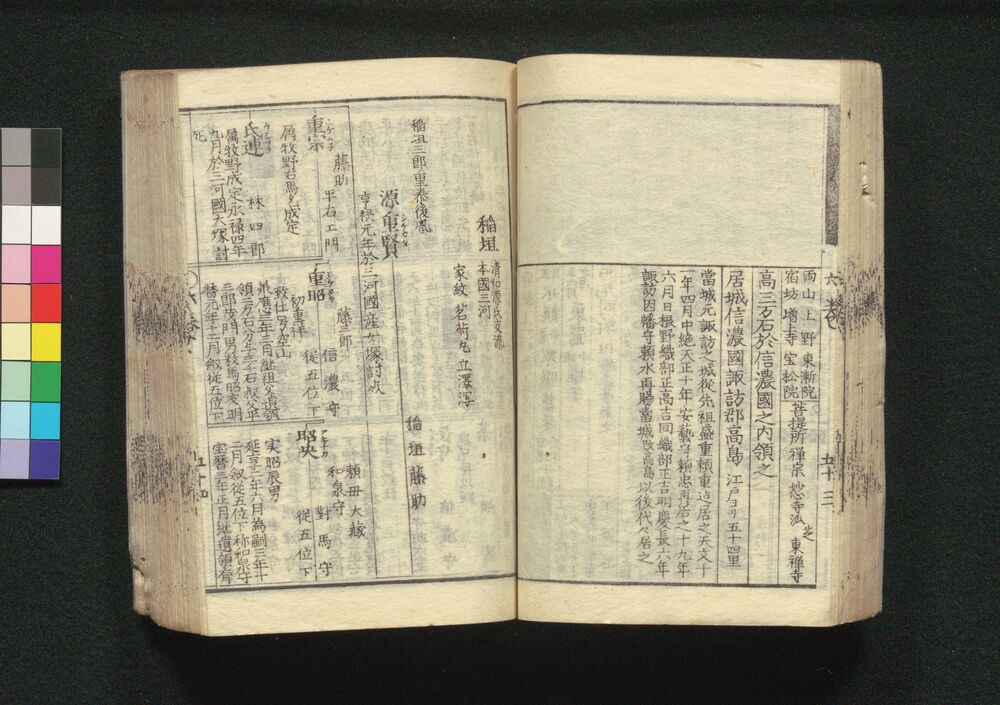 六巻
五十三
両山上野 東漸院
宿坊増上寺 宝松院
菩提所禅宗妙寺派 芝 東禅寺
高三万石於信濃國之内領之
居城信濃國諏訪郡高島 江戸ヨリ五十四里
當城元諏訪之城從先祖盛重頼重迠居之天文十
一年四月中絶天正十年安藝守頼忠再居之十九年
六月日根野織部正高吉同織部正吉明慶長六年
諏訪因幡守頼水再賜當城改高島以後代々居之
稲垣 清和源氏支流
本國三河
家紋 茗荷丸 立澤瀉
稲垣三郎重泰後胤
稲垣藤助
源重賢 シゲカタ
享禄元年於三河國産女塚討死
重宗 シゲムネ 藤助
平右エ門
属牧野右馬允成定
氏連 ウヂツラ 林四郎
属牧野成定永禄四年
九月於三河國大塚討
死
重昭 藤三郎
信濃守
初重祥
従五位下
致仕号空山
承應三年三月継祖父遺領
三月叙従五位下
昭央 頼母 大蔵
和泉守
對馬守
従五位下
実昭辰男
延享二年六月為嗣三年十
二月叙從五位下称和泉守
宝暦三年正月継遺領有
五十四